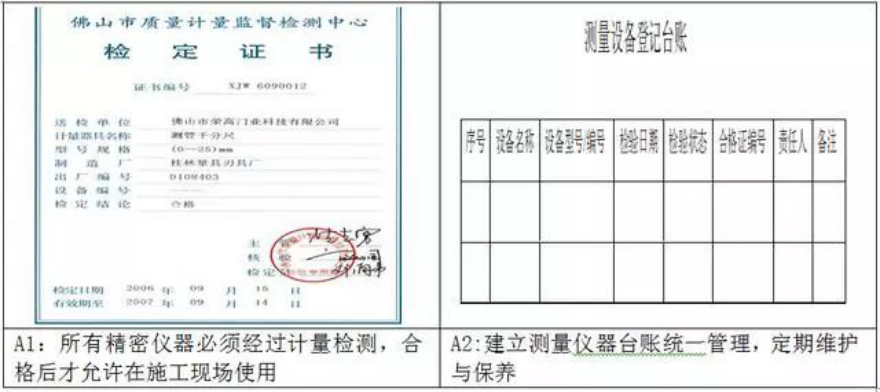 佛山市质量计量监督检测中心
检 定 证 书
证书编号 XJW 6090012
送检单位 佛山市荣高门业科技有限公司
计量器具名称 测管千分尺
型号规格 (0—25)mm
制造厂 桂林量具刃具厂
出厂编号 0108403
设备编号
检定结论 合格
主
核 验
检 定
检定日期 2006 年 09 月 15 日
有效期至 2007 年 09 月 14 日
A1：所有精密仪器必须经过计量检测，合
格后才允许在施工现场使用
测量设备登记台账
序号 设备名称 设备型号/编号 检验日期 检验状态 合格证编号 责任人 备注
A2:建立测量仪器台账统一管理，定期维护
与保养